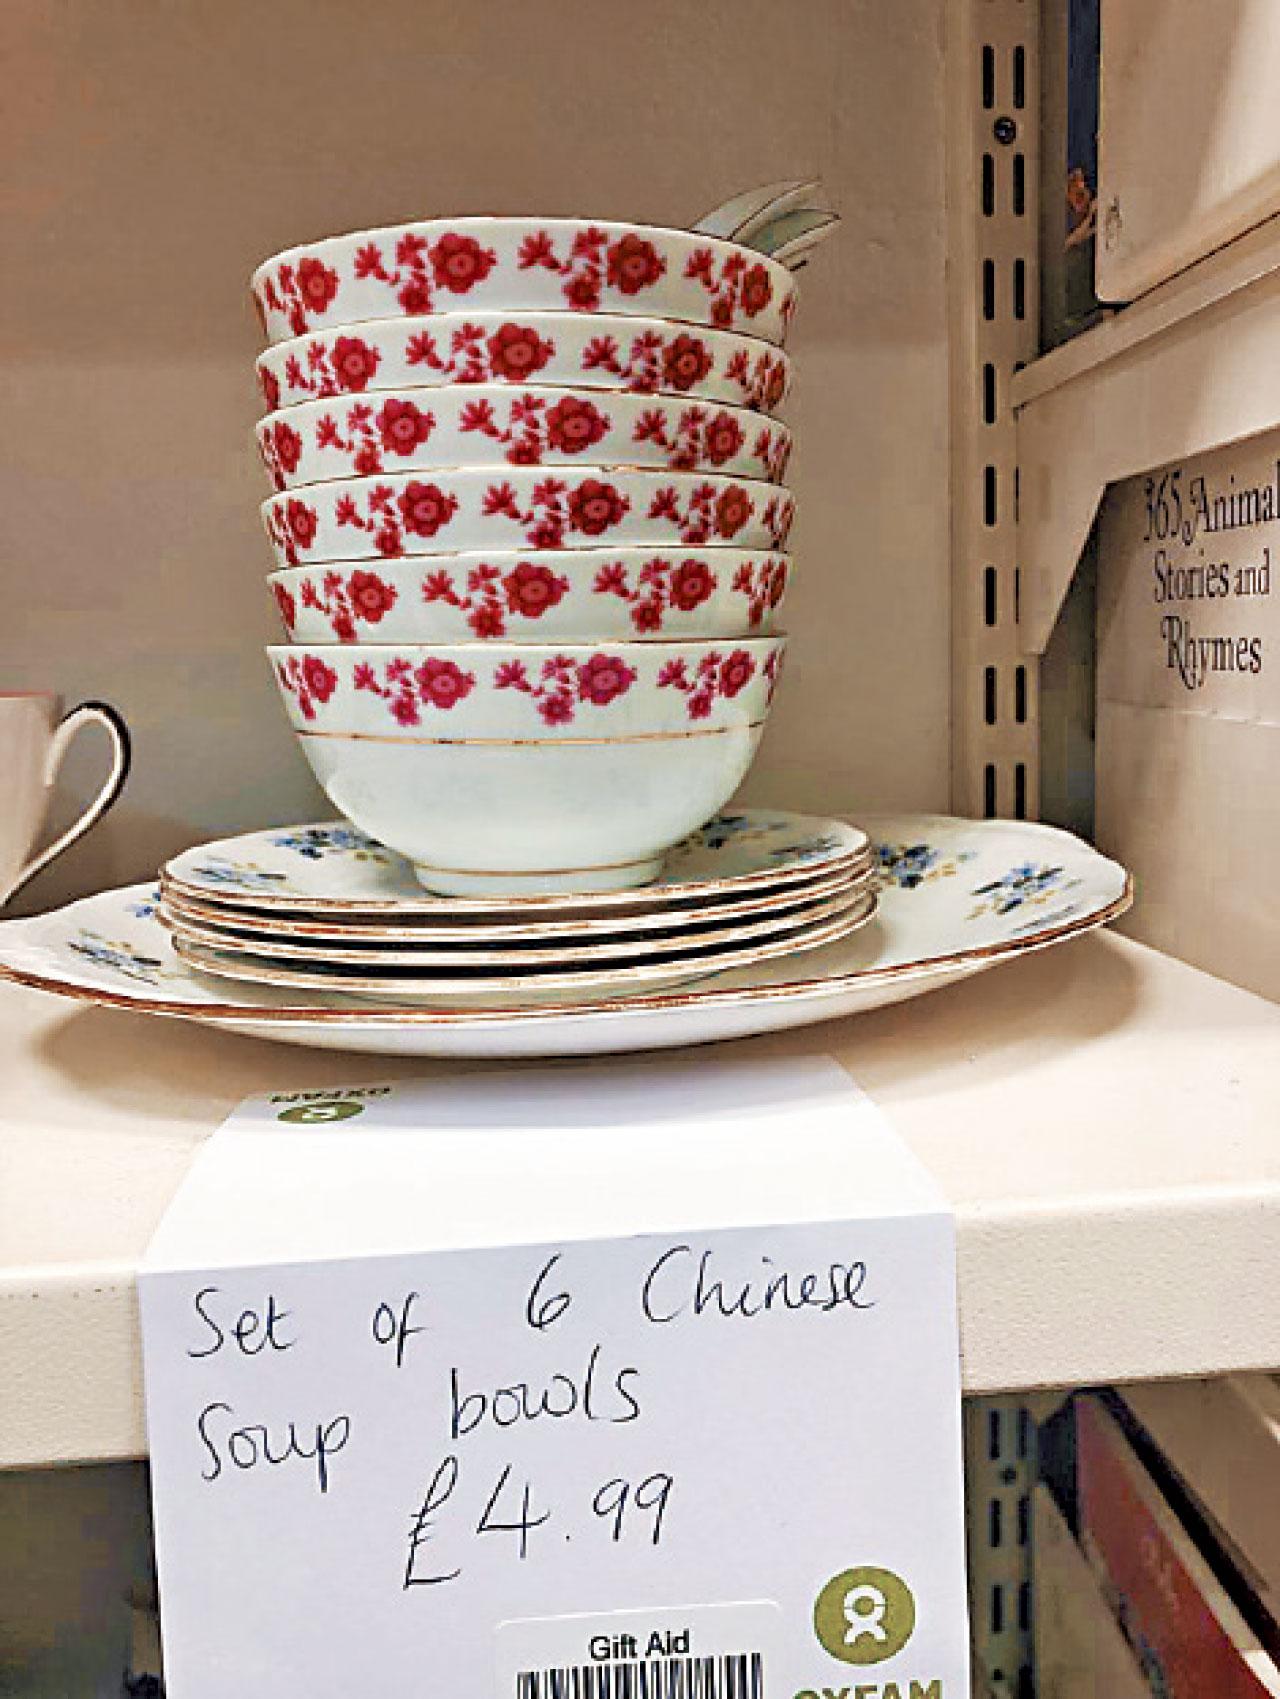 365 Animal
Stories and
Rhymes
OXFAM
Set of 6 Chinese
Soup bowls
£4.99
Gift Aid
OXFAM